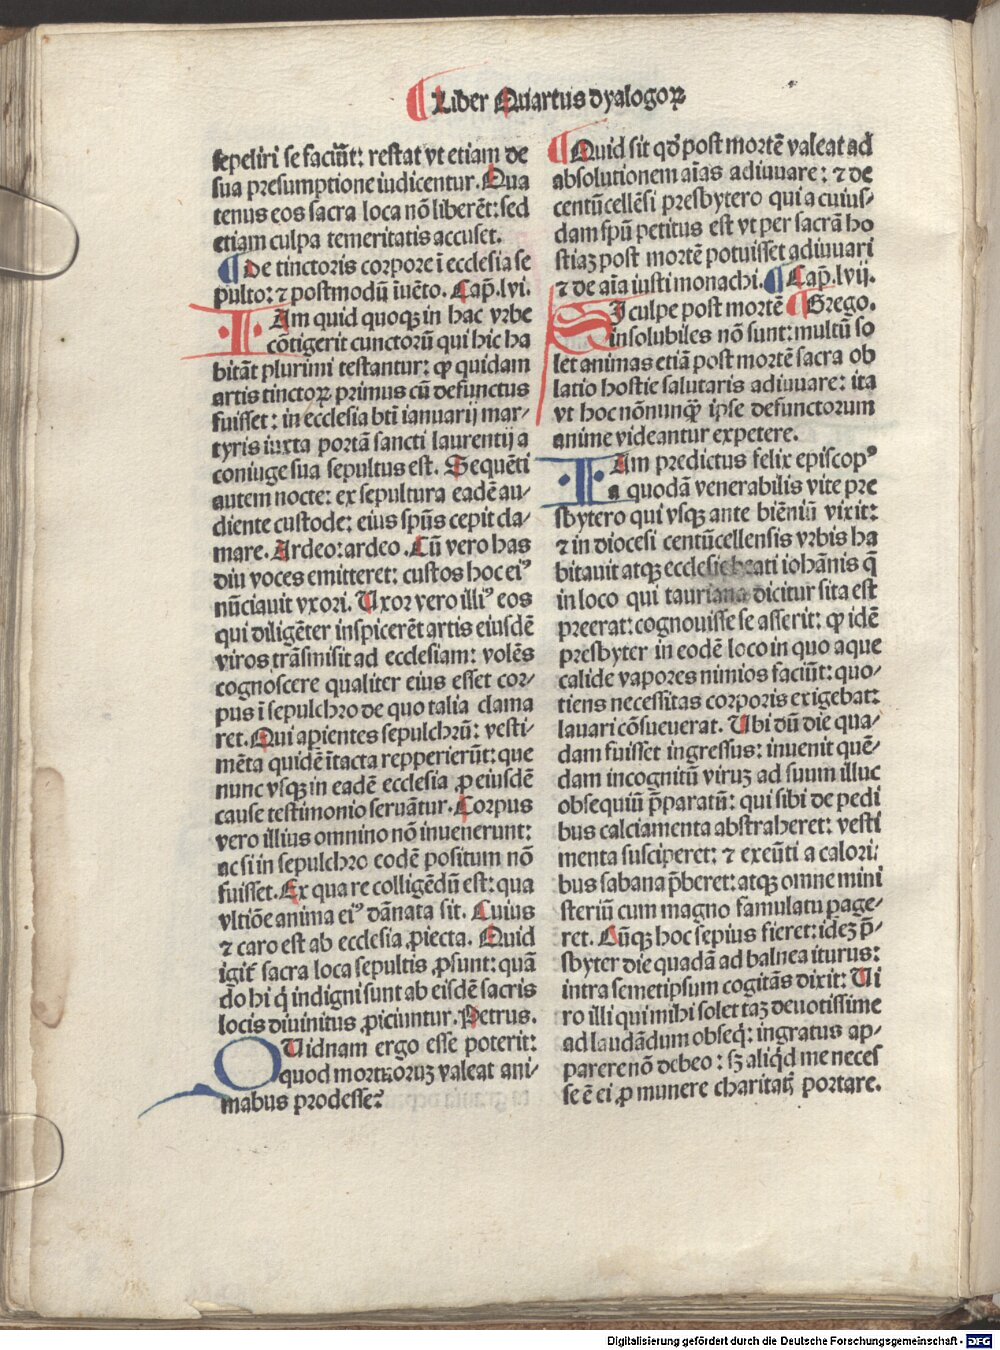 ¶ Liber Quartus dyalogoꝝ
sepeliri se faciūt: restat vt etiam de
sua presumptione iudicentur. Qua
tenus eos sacra loca nō liberēt: sed
etiam culpa temeritatis accuset.
¶ De tinctoris corpore ī ecclesia se
pulto: ⁊ postmodū īuēto. Cap̄. lvi.
IAm quid quoqꝫ in hac vrbe
cōtigerit cunctorū qui hic ha
bitāt plurimi testantur: ꝙ quidam
artis tinctoꝝ primus cū defunctus
fuisset: in ecclesia bti ianuarij mar⸗
tyris iuxta portā sancti laurentij a
coniuge sua sepultus est. Sequēti
autem nocte: ex sepultura eadē au⸗
diente custode: eius spūs cepit cla⸗
mare. Ardeo: ardeo. Cū vero has
diu voces emitteret: custos hoc eiꝰ
nūciauit vxori. Uxor vero illiꝰ eos
qui diligēter inspicerēt artis eiusdē
viros trāsmisit ad ecclesiam: volēs
cognoscere qualiter eius esset cor⸗
pus ī sepulchro de quo talia clama
ret. Qui apientes sepulchrū: vesti⸗
mēta quidē ītacta repperierūt: que
nunc vsqꝫ in eadē ecclesia ꝓ eiusdē
cause testimonio seruātur. Corpus
vero illius omnino nō inuenerunt:
ac si in sepulchro eodē positum nō
fuisset. Ex qua re colligēdū est: qua
vltiōe anima eiꝰ dānata sit. Cuius
⁊ caro est ab ecclesia ꝓiecta. Quid
igit᷑ sacra loca sepultis ꝓsunt: quā
do hi q̇ indigni sunt ab eisdē sacris
locis diuinitus ꝓiciuntur. Petrus.
QUidnam ergo esse poterit:
quod mortuoruꝫ valeat ani⸗
mabus prodesse?
¶ Quid sit qd̄ post mortē valeat ad
absolutionem aīas adiuuare: ⁊ de
centūcellēsi presbytero qui a cuius⸗
dam spū petitus est vt per sacrā ho
stiaꝫ post mortē potuisset adiuuari
⁊ de aīa iusti monachi. ¶ Cap̄. lvij.
SI culpe post mortē ¶ Grego.
insolubiles nō sunt: multū so
let animas etiā post mortē sacra ob
latio hostie salutaris adiuuare: ita
vt hoc nōnunq̄ȝ ipse defunctorum
anime videantur expetere.
IAm predictus felix episcopꝰ
a quodā venerabilis vite pre
sbytero qui vsqꝫ ante biēniū vixit:
⁊ in diocesi centūcellensis vrbis ha
bitauit atqꝫ ecclesie beati iohānis q̄
in loco qui tauriana dicitur sita est
preerat: cognouisse se asserit: ꝙ idē
presbyter in eodē loco in quo aque
calide vapores nimios faciūt: quo⸗
tiens necessitas corporis exigebat:
lauari cōsueuerat. Ubi dū die qua⸗
dam fuisset ingressus: inuenit quē⸗
dam incognitū viruꝫ ad suum illuc
obsequiū p̄paratū: qui sibi de pedi
bus calciamenta abstraheret: vesti
menta susciperet: ⁊ exeūti a calori⸗
bus sabana p̄beret: atqꝫ omne mini
steriū cum magno famulatu page⸗
ret. Cūqꝫ hoc sepius fieret: ideꝫ p̄⸗
sbyter die quadā ad balnea iturus:
intra semetipsum cogitās dixit: Ui
ro illi qui mihi solet taꝫ deuotissime
ad laudādum obseq̇: ingratus ap⸗
parere nō debeo: sꝫ aliq̇d me neces
se ē ei ꝓ munere charitatꝭ portare.
Digitalisierung gefördert durch die Deutsche Forschungsgemeinschaft - DFG